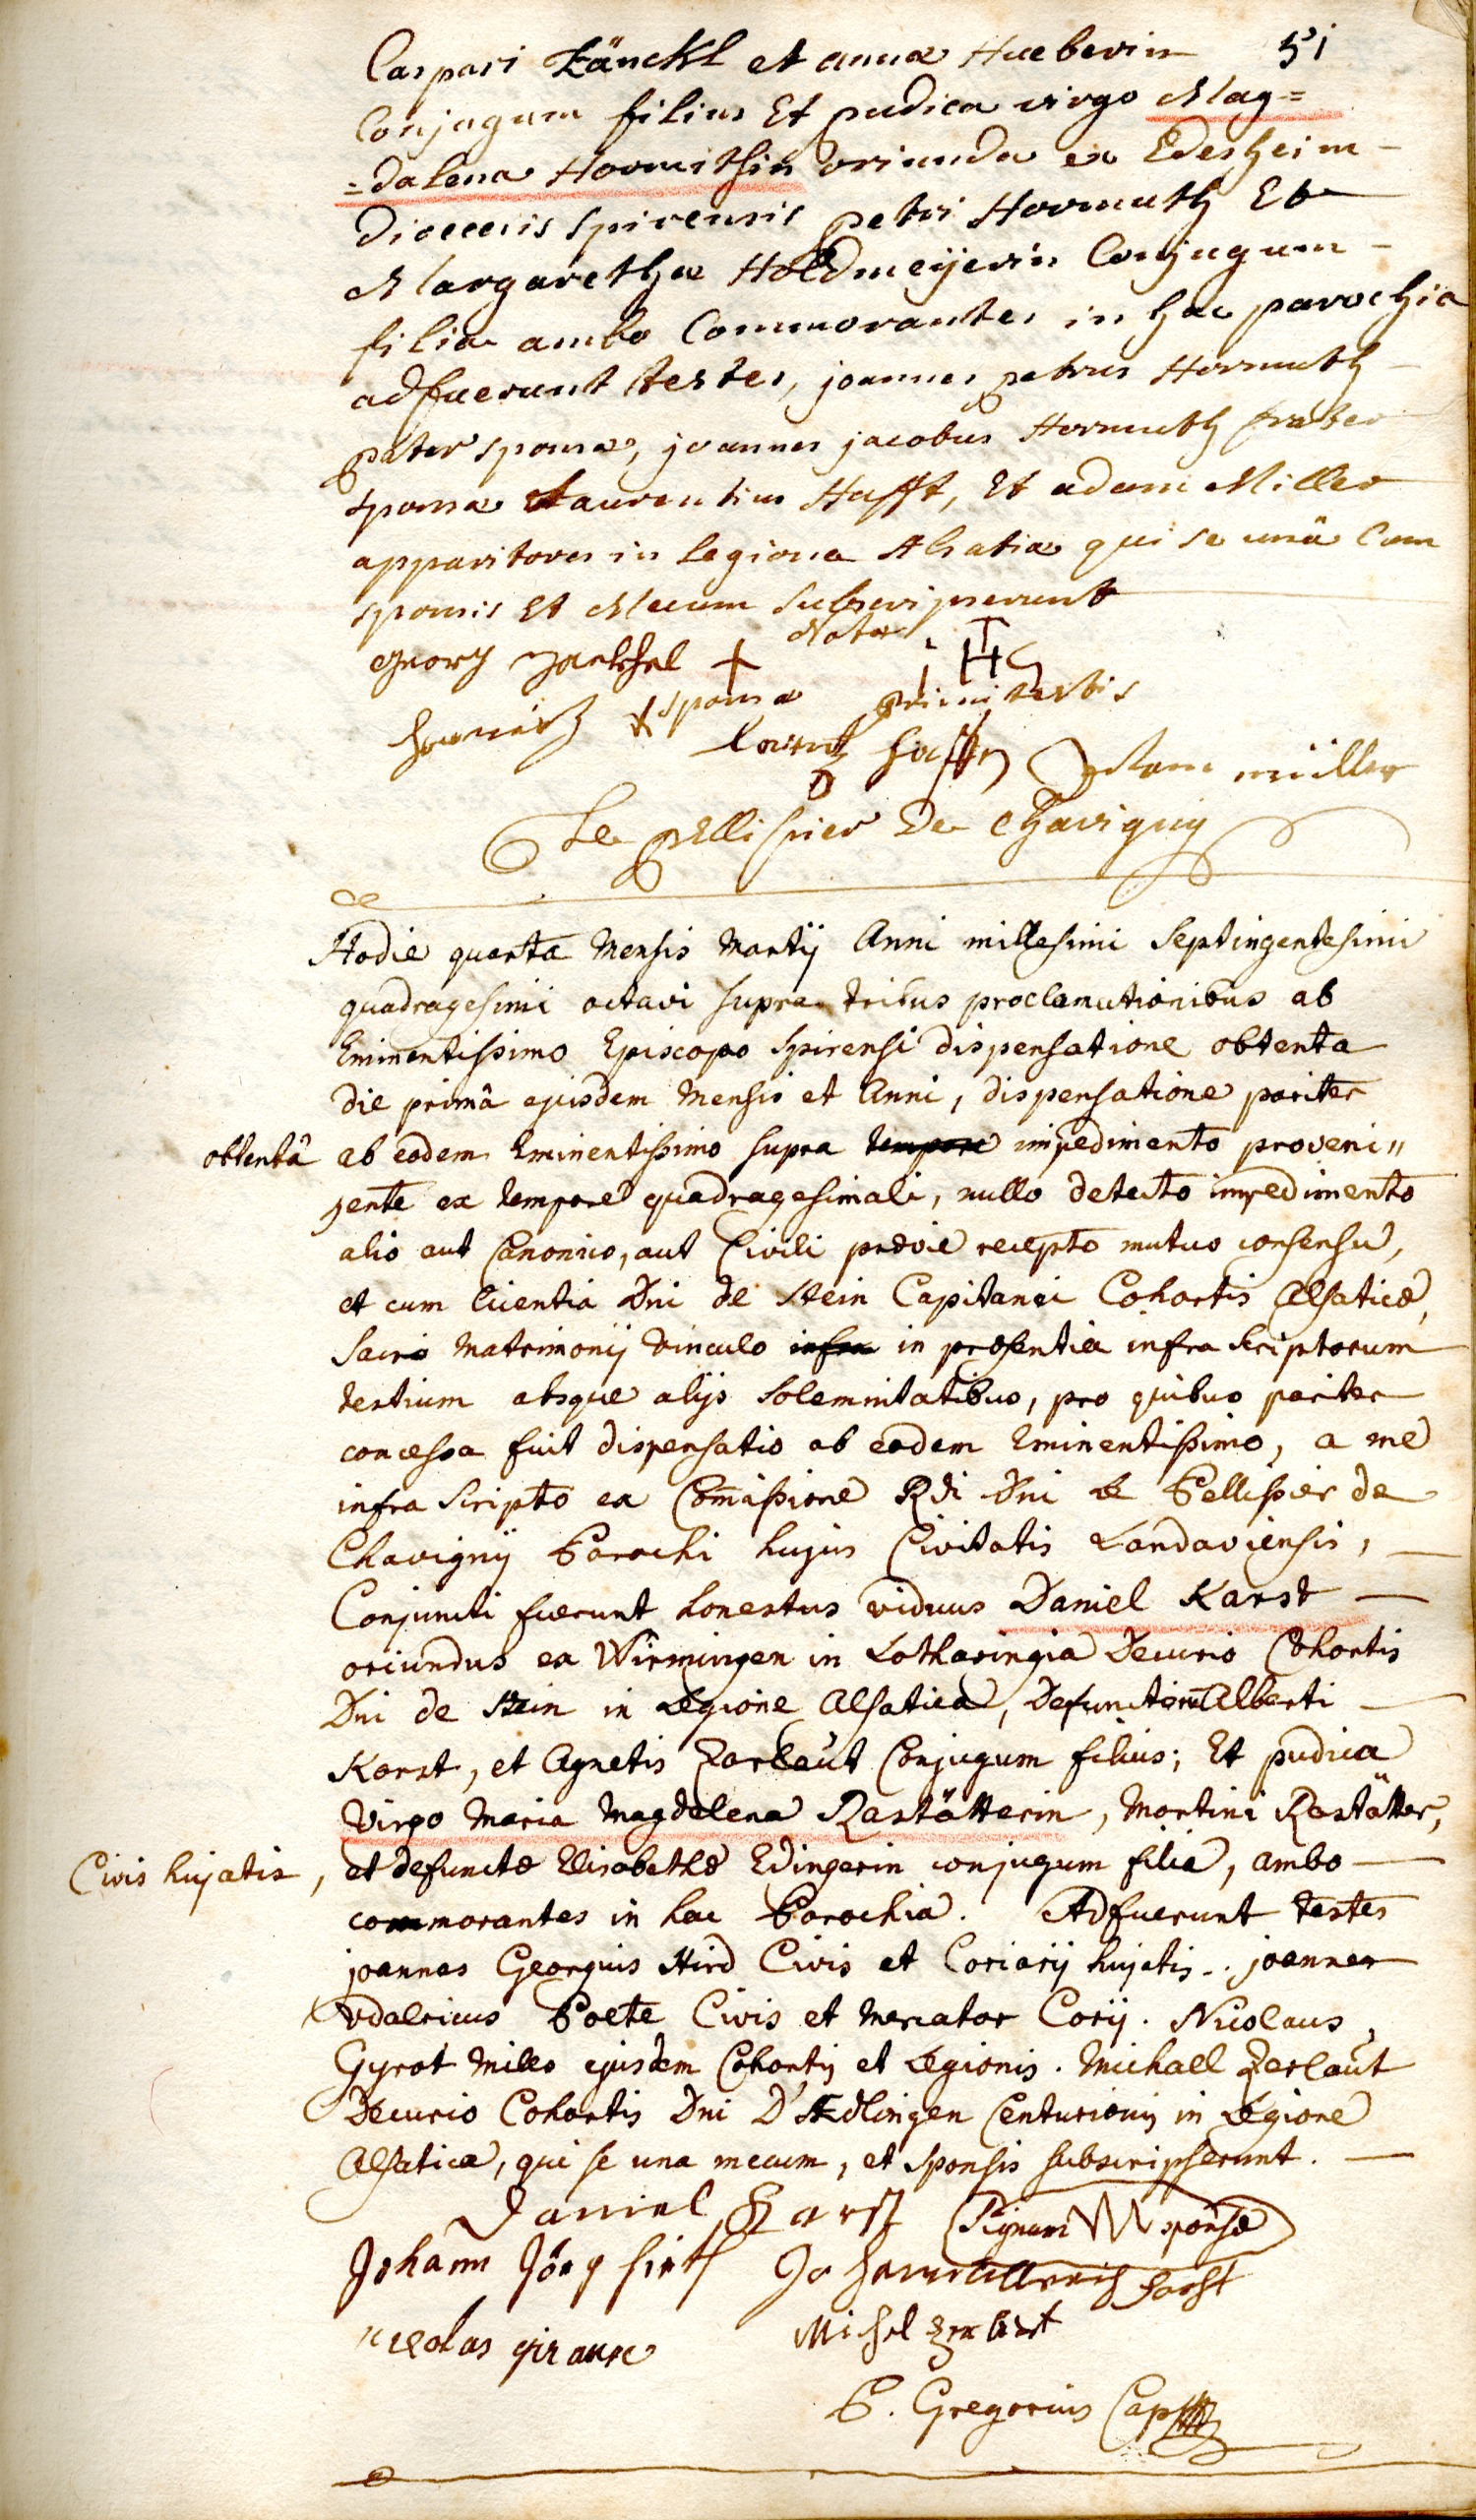 Caspari Zänckl et annæ Hueberin 51
Conjugum filius Et pudica virgo Mag=
=dalena Hormithin oriunda ex Edesheim
Diœcesis spirensis petri Hormuth Et
Margarethæ Holdmeÿerin Conjugum
filia ambo Commorantes in hac parochia
adfuerunt testes, joannes petrus Hormuth
pater sponsæ, joannes jacobus Hormuth frater
sponsæ Laurentius Hafft, Et adam Miller
apparitores in Legione Alsatiæ qui se unâ Cum
sponsis Et Mecum Subscripserunt
Nota
georg +
sponsæ primi testis
Lorentz Hafft Adam müller
Le pellissier De Chavigny
Hodie quarta Mensis Martij Anni millesimi Septingentesimi
quadragesimi octavi supra tribus proclamationibus ab
Eminentissimo Episcopo Spirensi dispensatione obtenta
die primâ ejusdem Mensis et Anni, dispensatione pariter
obtentâ ab eodem Eminentissimo supra tempore impedimento proveni"
ente ex tempore quadragesimali, nullo detecto impedimento
alio aut Canonico, aut Civili prævie recepto mutuo consensu,
et cum licentia Dni de Stein Capitanei Cohortis Alsaticæ,
Sacro Matrimonij vinculo infra in præsentia infra scriptorum
testium absque alijs Solemnitatibus, pro quibus pariter
concessa fuit dispensatio ab eodem Eminentissimo, a me
infra scripto ex Comissione Rdi Dni Le Pellissier de
Chavignÿ Parochi hujus Civitatis Landaviensis,
Conjuncti fuerunt honestus viduus Daniel Karst
oriundus ex Wirmingen in Lotharingia Decurio Cohortis
Dni de Stein in Legione Alsatica, Defunctorum Alberti
Karst, et Agnetis Zerlaut Conjugum filius; Et pudica
Virgo Maria Magdalena Rastätterin, Martini Rastätter,
Civis hujatis, et defunctæ Elisabethæ Edingerin conjugum filia, ambo
commorantes in hac Parochia. Adfuerunt testes
joannes Georgius Hird Civis et Coriarij hujatis. joannes
Udalricus Poete Civis et Mercator Corij. Nicolaus
Gyrot Miles ejusdem Cohortis et Legionis. Michaël Zerlaut
Decurio Cohortis Dni D'Edlingen Centurionis in Legione
Alsatica, qui se una mecum, et Sponsis subscripserunt.
Daniel Karst Signum sponsæ
Johann Jörg hirt
nicolas giraux Michel
P. Gregorius Cap